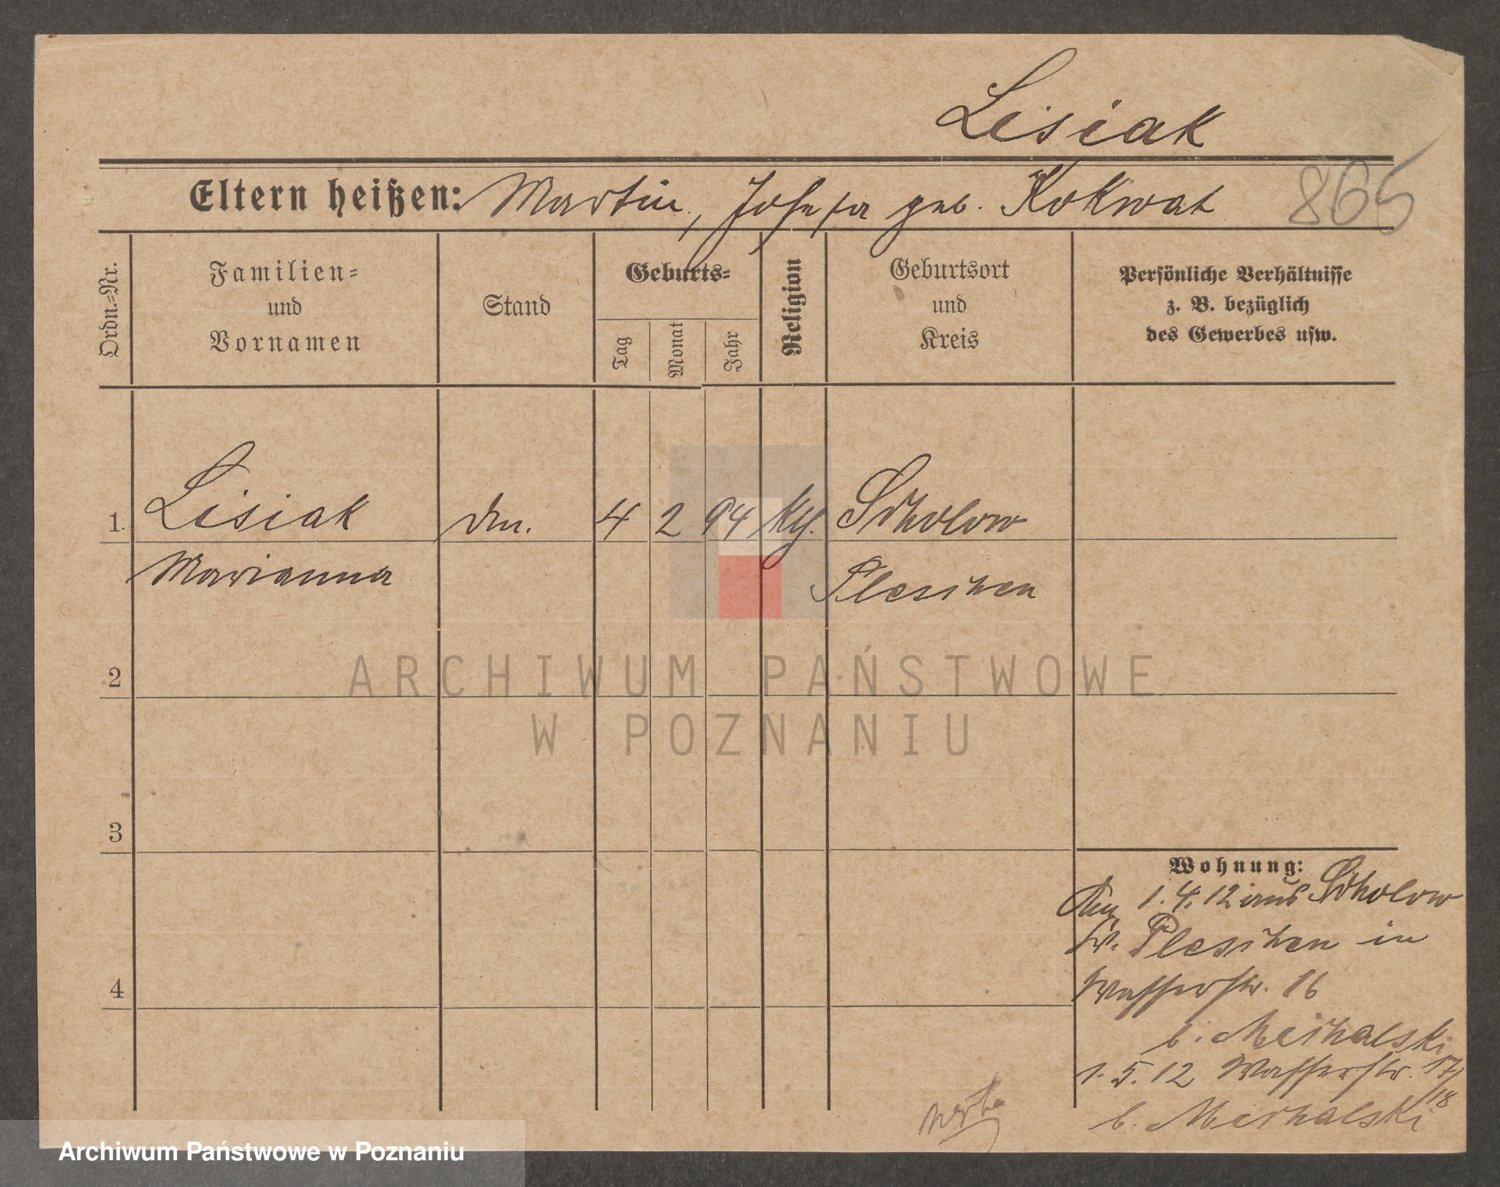 Lisiak
Eltern heißen: Martin, Josefa geb. Kokwat
865
Ordn.=Nr.
Familien=
und
Vornamen
Stand
Geburts=
Tag
Monat
Jahr
Religion
Geburtsort
und
Kreis
Persönliche Verhältnisse
z. B. bezüglich
des Gewerbes usw.
1. Lisiak 4 2 94 kth. Sokolow
Marianna Pleschen
2
ARCHIWUM PAŃSTWOWE
W POZNANIU
3
Wohnung:
1.4.12 aus Sokolow
Kr. Pleschen in
4
Wasserstr. 16
b. Michalski
1.5.12 Wasserstr. 17/18
b. Michalski
Archiwum Państwowe w Poznaniu